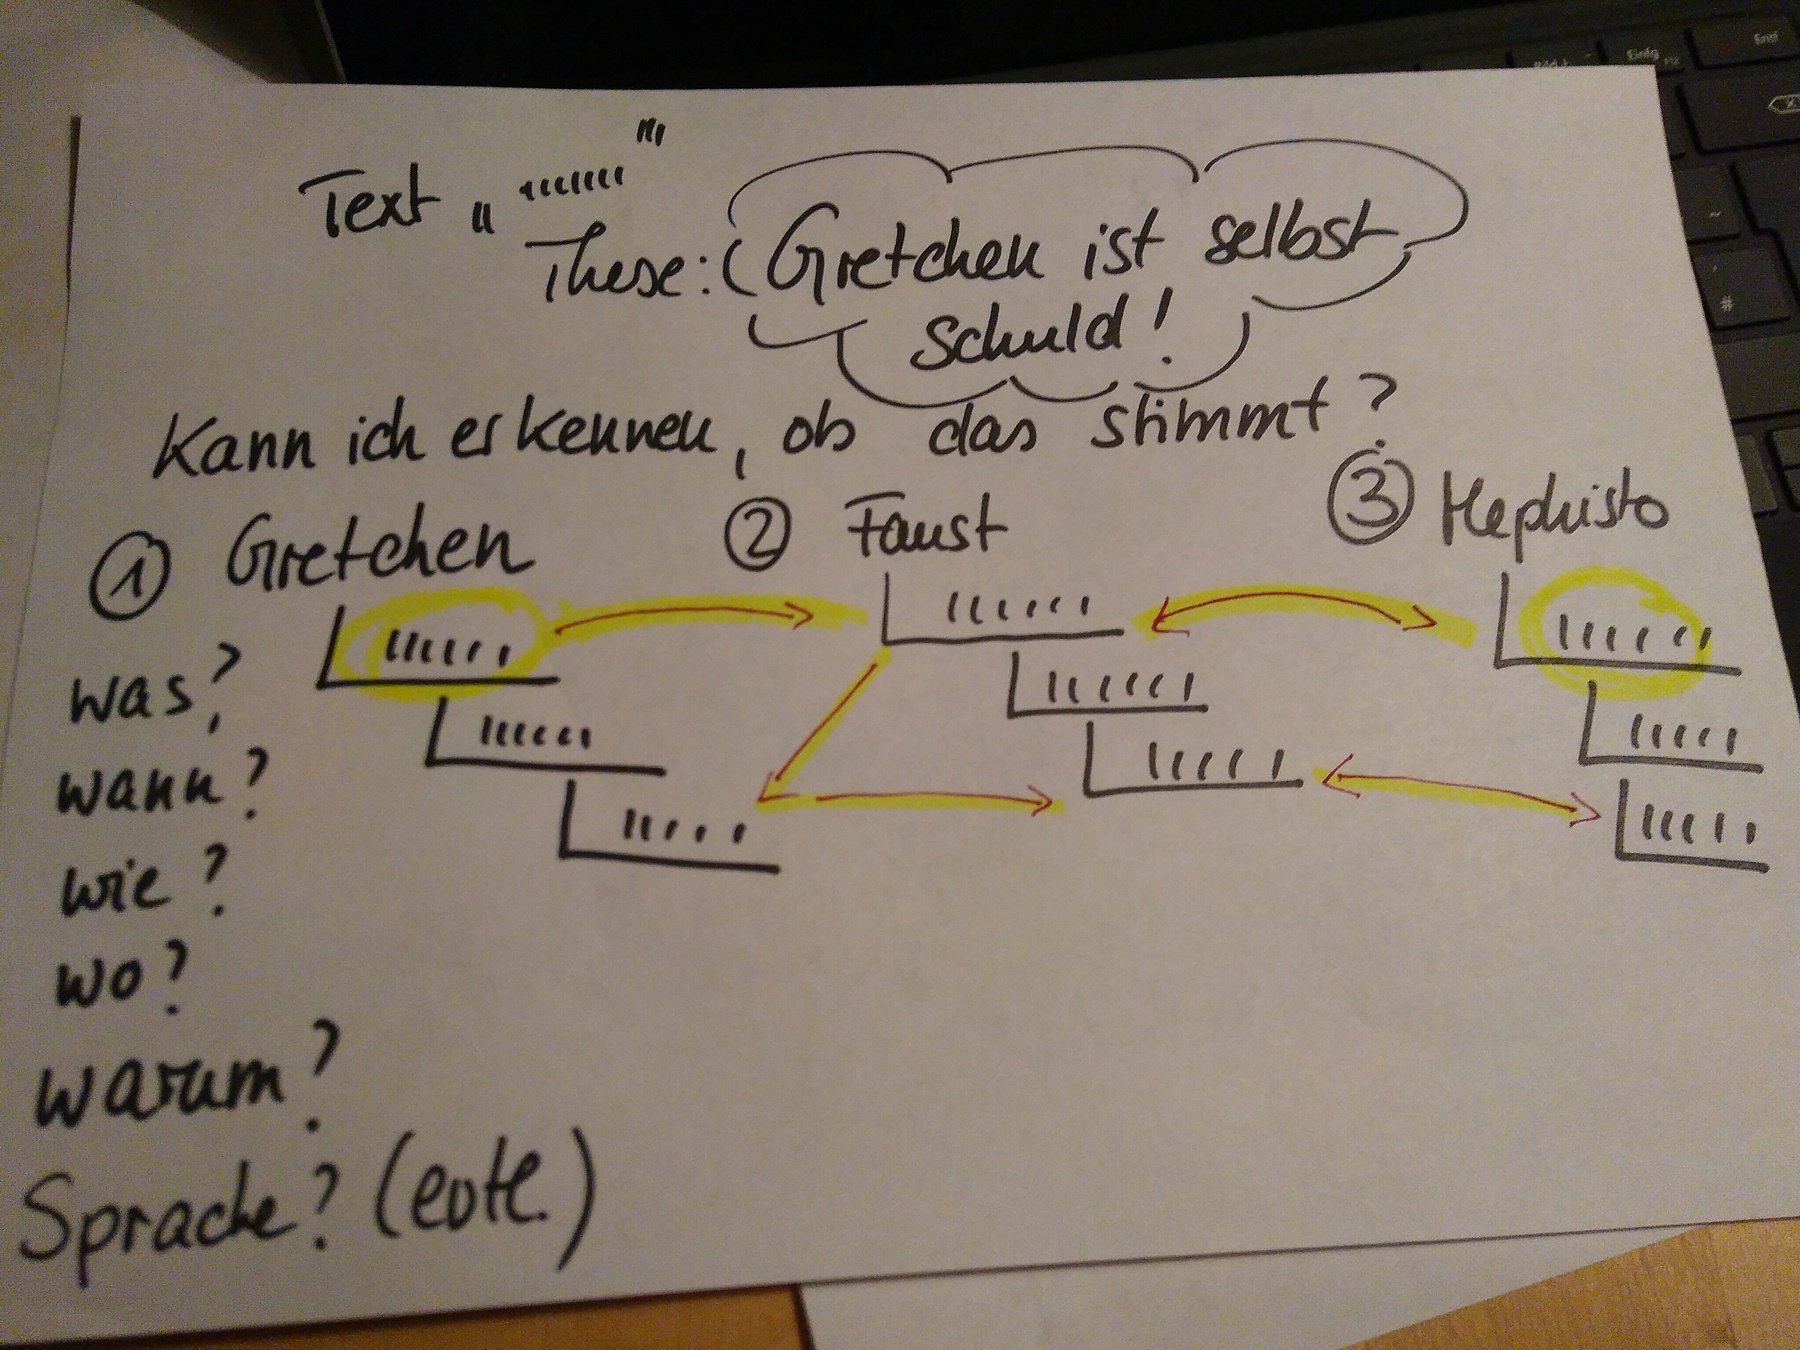 Text „ "
These: Gretchen ist selbst
schuld!
Kann ich erkennen, ob das stimmt?
① Gretchen ② Faust ③ Mephisto
was?
wann?
wie?
wo?
warum?
Sprache? (evtl.)
Einfg
Entf
#
~